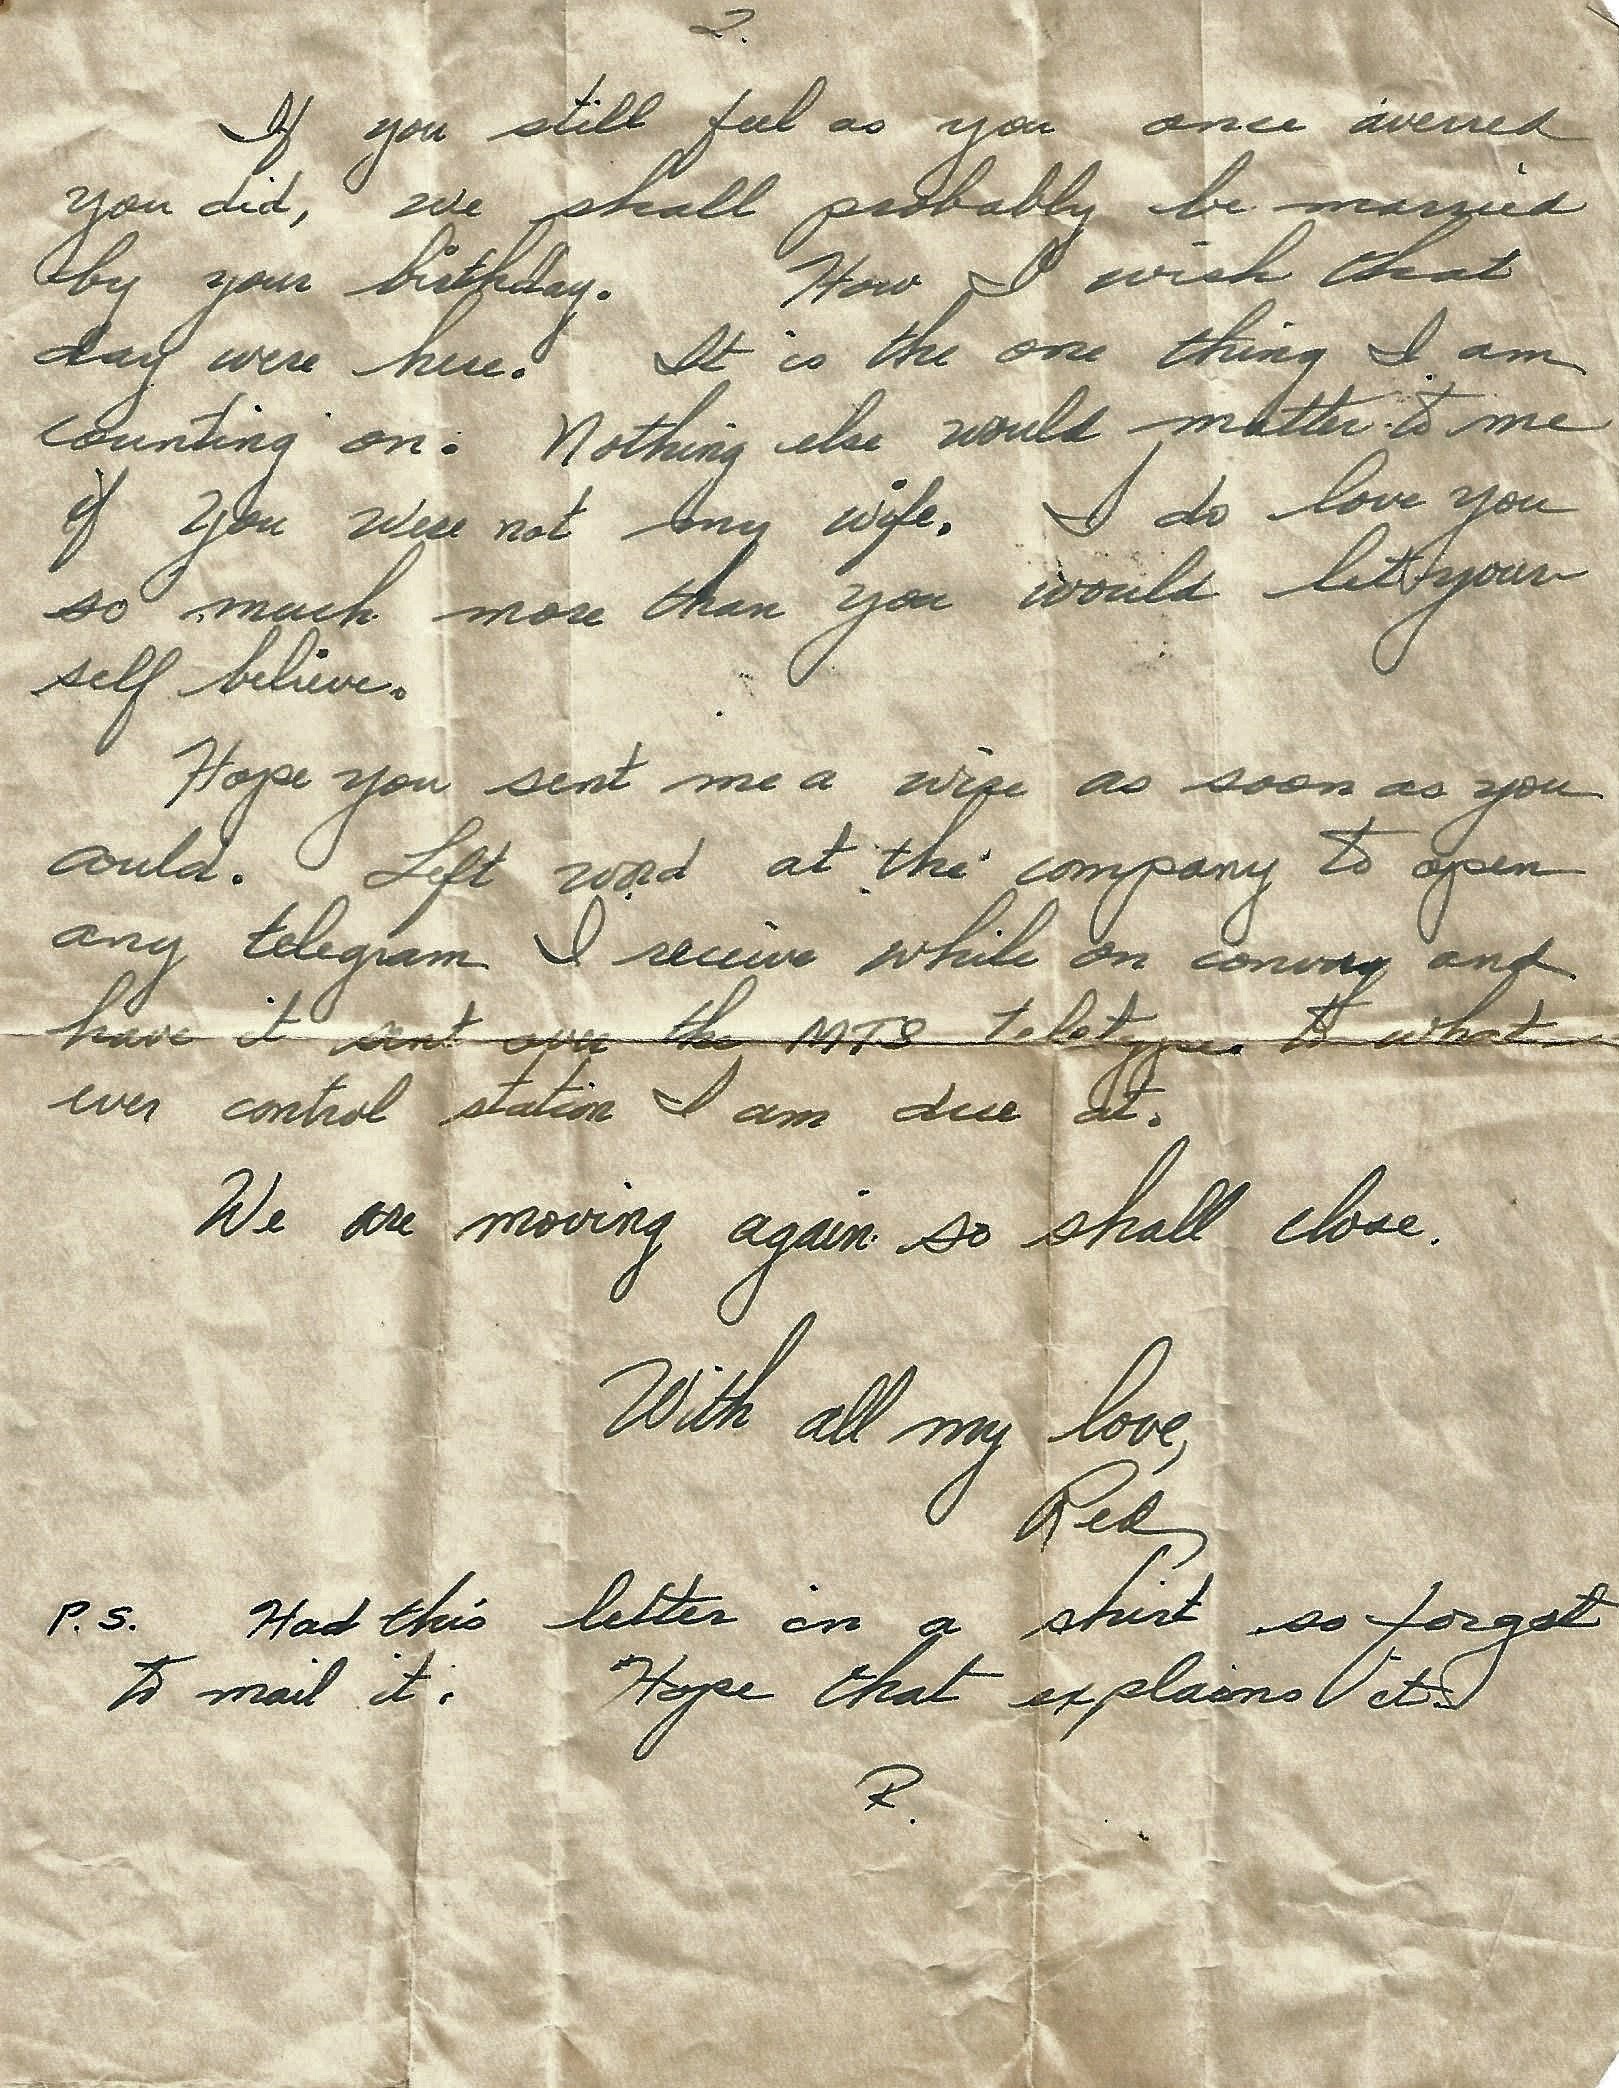 2.
If you still feel as you once averred
you did, we shall probably be married
by your birthday. How I wish that
day were here. It is the one thing I am
counting on. Nothing else would matter to me
if you were not my wife. I do love you
so much more than you would let your
self believe.
Hope you sent me a wire as soon as you
could. Left word at the company to open
any telegram I receive while on convoy and
have it sent over the MTS teletype to what
ever control station I am due at.
We are moving again so shall close.
With all my love,
Red
P.S. Had this letter in a shirt so forgot
to mail it. Hope that explains it.
R.